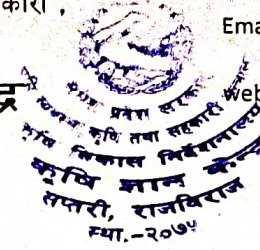 कारी ,
Ema
web
प्रदेश सरकार
कृषि तथा सहकारी
कृषि विकास निर्देशनालय
कृषि ज्ञान केन्द्र
सप्तरी, राजविराज
स्था.-२०७५